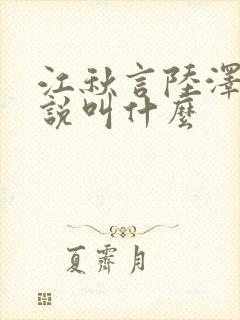 江秋言陸澤
說叫什麼
夏霽月